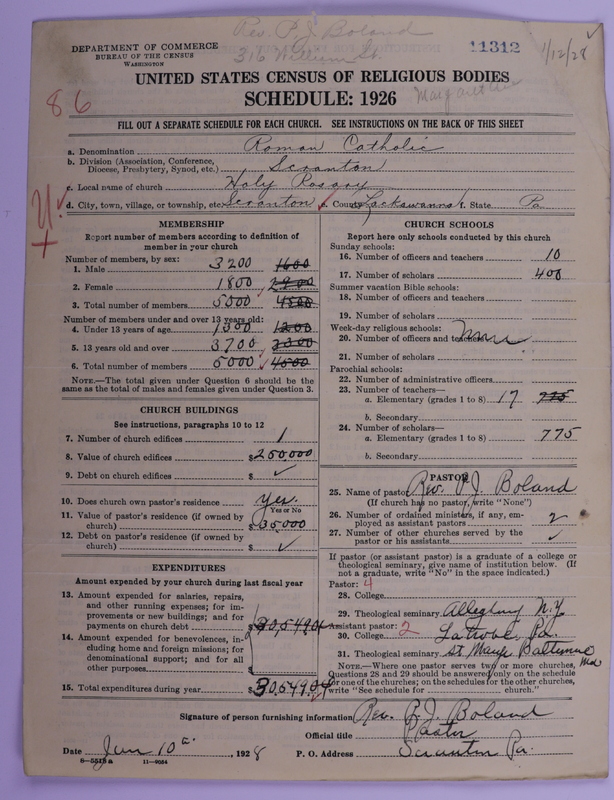 Rev. P. J. Boland
316 William St.
DEPARTMENT OF COMMERCE
BUREAU OF THE CENSUS
WASHINGTON
11312
1/12/28
UNITED STATES CENSUS OF RELIGIOUS BODIES
SCHEDULE: 1926
86
FILL OUT A SEPARATE SCHEDULE FOR EACH CHURCH. SEE INSTRUCTIONS ON THE BACK OF THIS SHEET
a. Denomination Roman Catholic
b. Division (Association, Conference, Diocese, Presbytery, Synod, etc.) Scranton
c. Local name of church Holy Rosary
d. City, town, village, or township, etc. Scranton e. County Lackawanna f. State Pa.
MEMBERSHIP
Report number of members according to definition of
member in your church
Number of members, by sex:
1. Male 3200 1600
2. Female 1800 2900
3. Total number of members 5000 4500
Number of members under and over 13 years old:
4. Under 13 years of age 1300 1200
5. 13 years old and over 3700 3300
6. Total number of members 5000 4500
NOTE.—The total given under Question 6 should be the
same as the total of males and females given under Question 3.
CHURCH BUILDINGS
See instructions, paragraphs 10 to 12
7. Number of church edifices 1
8. Value of church edifices $250,000
9. Debt on church edifices $ ✓
10. Does church own pastor's residence yes.
Yes or No
11. Value of pastor's residence (if owned by
church) $35,000
12. Debt on pastor's residence (if owned by
church) $ ✓
EXPENDITURES
Amount expended by your church during last fiscal year
13. Amount expended for salaries, repairs,
and other running expenses; for im-
provements or new buildings; and for
payments on church debt $30,549.04
14. Amount expended for benevolences, in-
cluding home and foreign missions; for
denominational support; and for all
other purposes $
15. Total expenditures during year $30,549.04
CHURCH SCHOOLS
Report here only schools conducted by this church
Sunday schools:
16. Number of officers and teachers 10
17. Number of scholars 400
Summer vacation Bible schools:
18. Number of officers and teachers
19. Number of scholars
Week-day religious schools:
20. Number of officers and teachers None
21. Number of scholars
Parochial schools:
22. Number of administrative officers
23. Number of teachers—
a. Elementary (grades 1 to 8) 17 775
b. Secondary
24. Number of scholars—
a. Elementary (grades 1 to 8) 775
b. Secondary
PASTOR
25. Name of pastor Rev. P. J. Boland
(If church has no pastor, write "None")
26. Number of ordained ministers, if any, em-
ployed as assistant pastors 2
27. Number of other churches served by the
pastor or his assistants ✓
If pastor (or assistant pastor) is a graduate of a college or
theological seminary, give name of institution below. (If
not a graduate, write "No" in the space indicated.)
Pastor: 4
28. College
29. Theological seminary Allegheny N.Y
Assistant pastor: 2
30. College Latrobe, Pa.
31. Theological seminary St Marys Baltimore Md
NOTE.—Where one pastor serves two or more churches,
Questions 28 and 29 should be answered only on the schedule
for one of the churches; on the schedules for the other churches,
write "See schedule for church."
Signature of person furnishing information Rev. P. J. Boland
Official title Pastor
Date Jan 10th, 1928 P. O. Address Scranton Pa.
8—5515a 11—9034